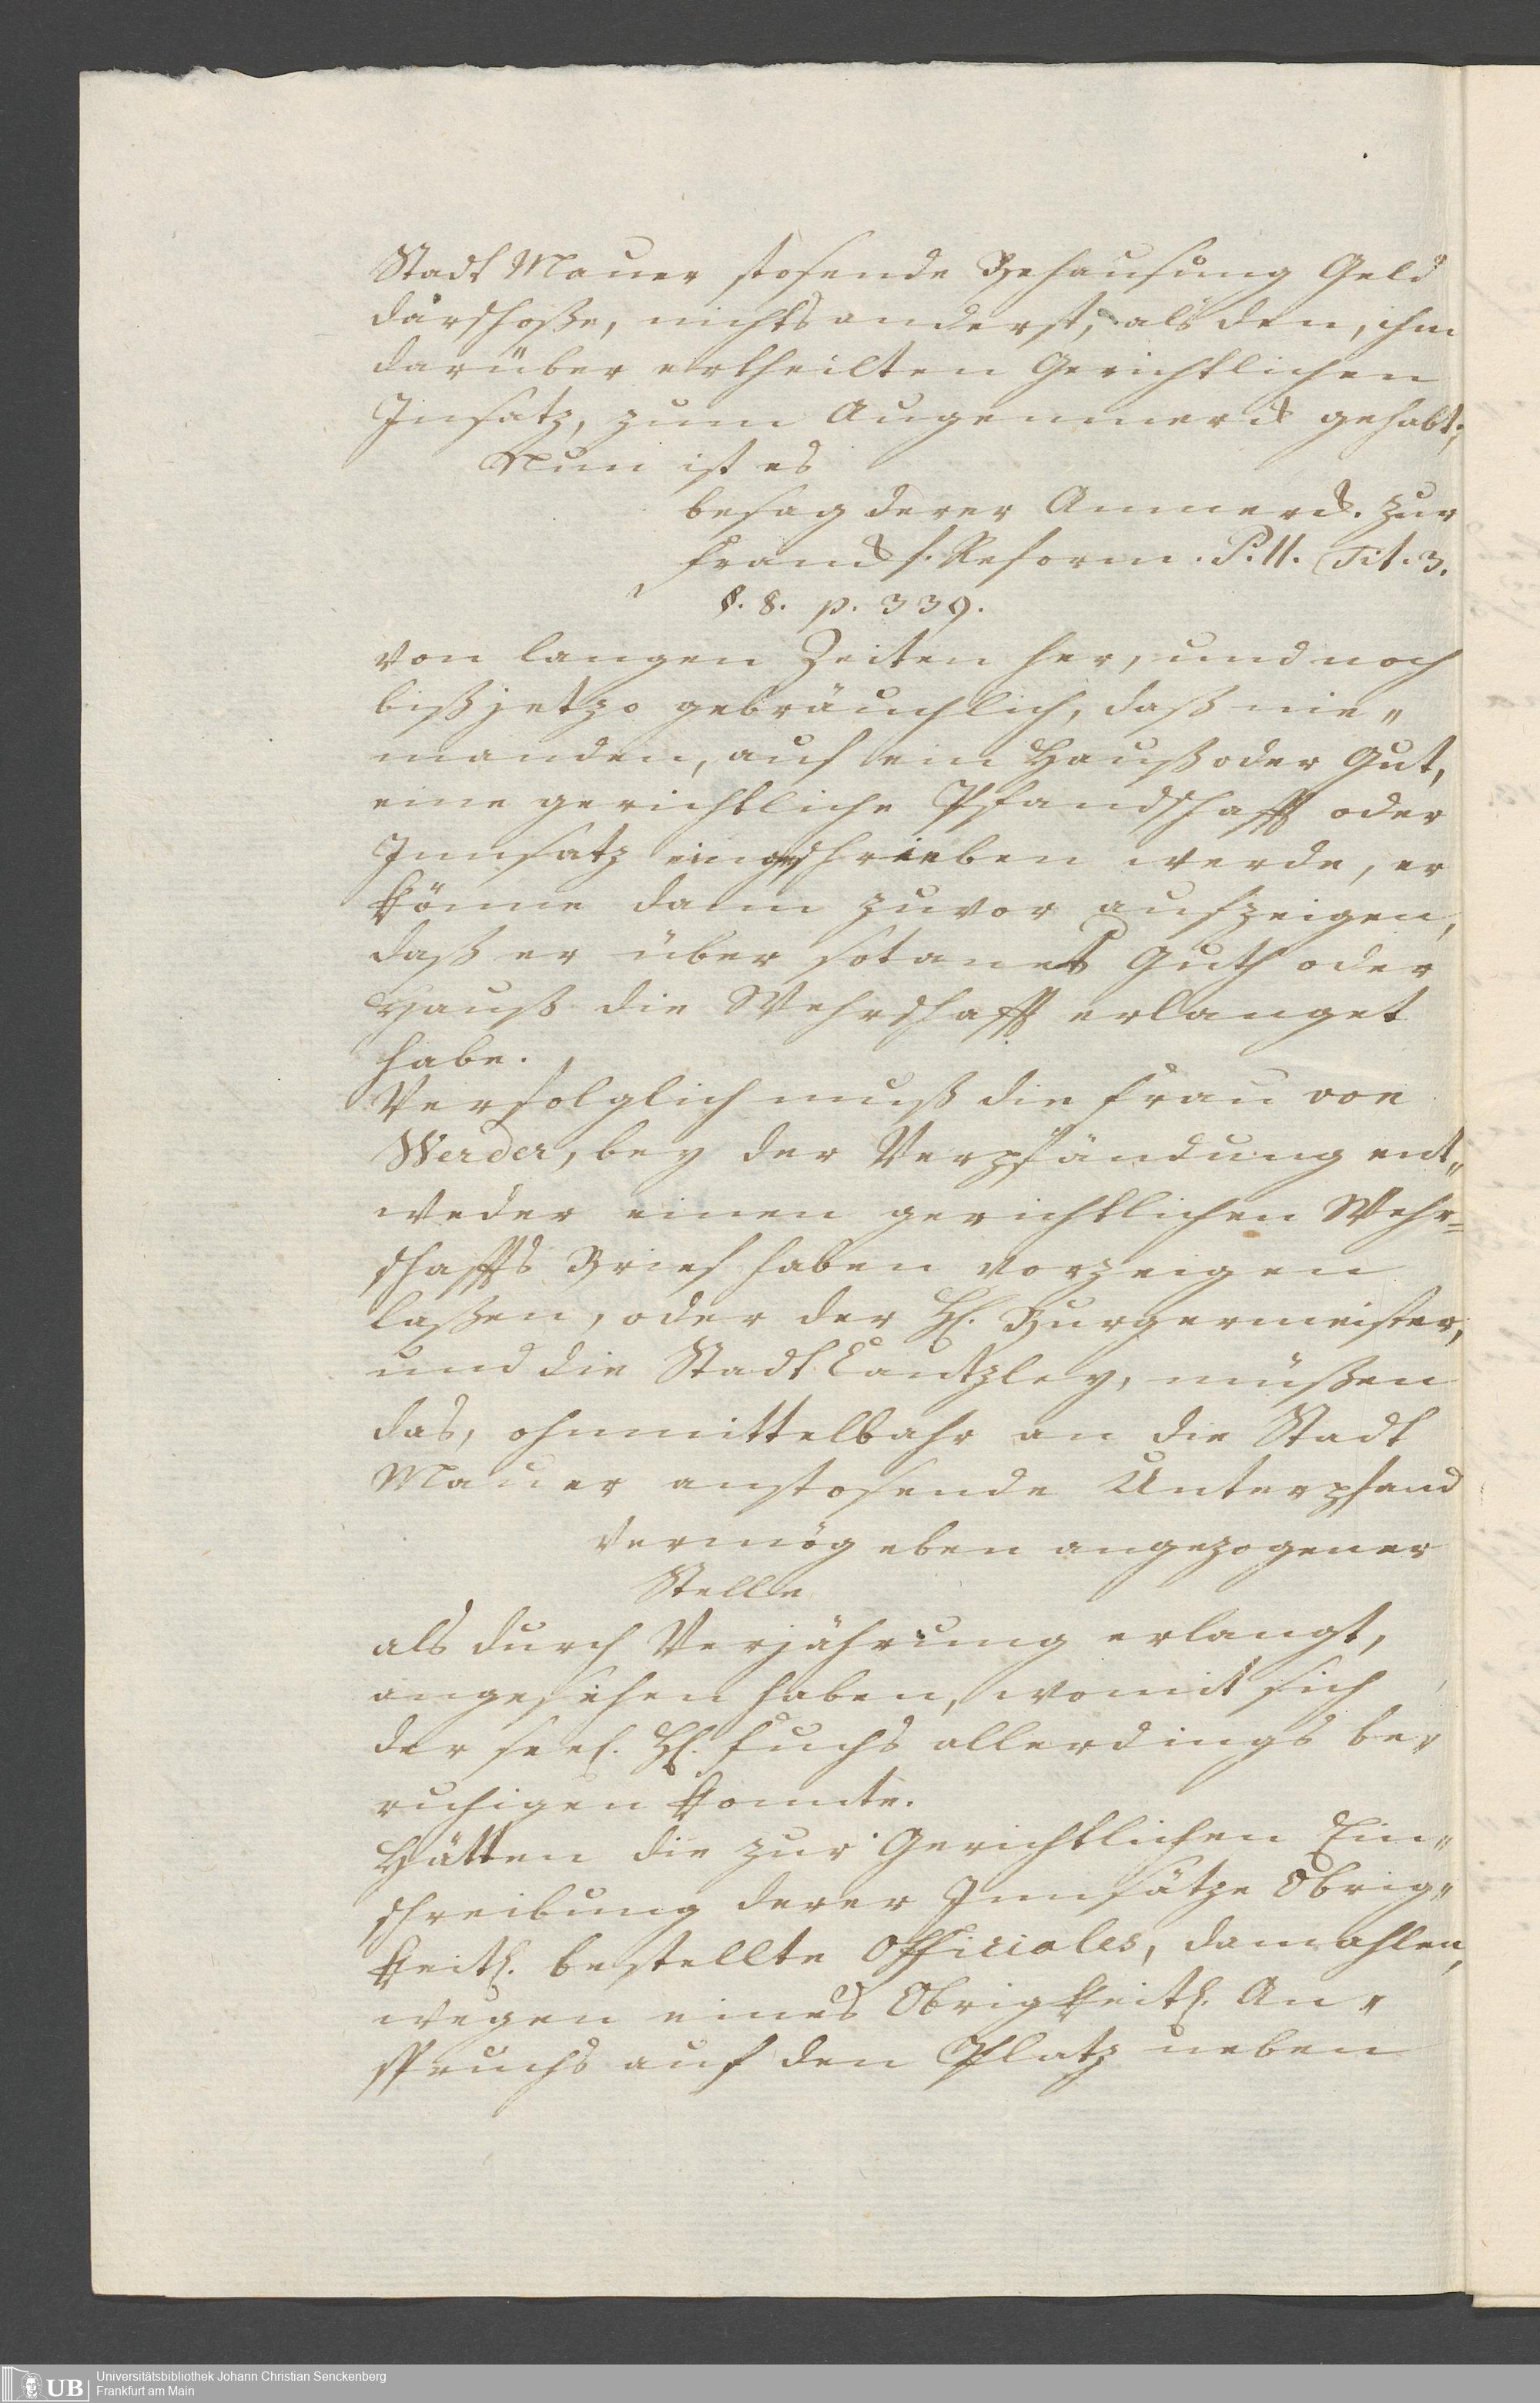 Stadt Mauer stosende Behausung Geld
darschoße, nichts anderst, als den, ihm
darüber ertheilten Gerichtlichen
Insatz, zum Augenmerck gehabt;
Nun ist es
besag derer Anmerck. zur
Franckf. Reform. P. II. Tit. 3.
§. 8. p. 339.
von langen Zeiten her, und noch
biß jetzo gebräuchlich, daß nie„
manden, auf ein Hauß oder Gut,
eine gerichtliche Pfandschafft oder
Innsatz eingeschrieben werde, er
könne dann zuvor aufzeigen,
daß er über sotanes Guth oder
Hauß die Wehrschafft erlanget
habe.
Verfolglich muß die Frau von
Werder, bey der Verpfändung ent„
weder einen gerichtlichen Wehr=
schaffts Brief haben vorzeigen
laßen, oder der H. Burgermeister,
und die Stadt Cantzley, müßen
das, ohnmittelbahr an die Stadt
Mauer anstosende Unterpfand
vermög eben angezogener
Stelle
als durch Verjährung erlangt,
angesehen haben, womit sich
der seel. H. Fuchs allerdings be„
ruhigen konnte.
Hätten die zur Gerichtlichen Ein„
schreibung derer Innsätze Obrig„
keitl. bestellte Officiales, damahlen,
wegen eines Obrigkeitl. An„
spruchs auf den Platz neben
UB
Universitätsbibliothek Johann Christian Senckenberg
Frankfurt am Main